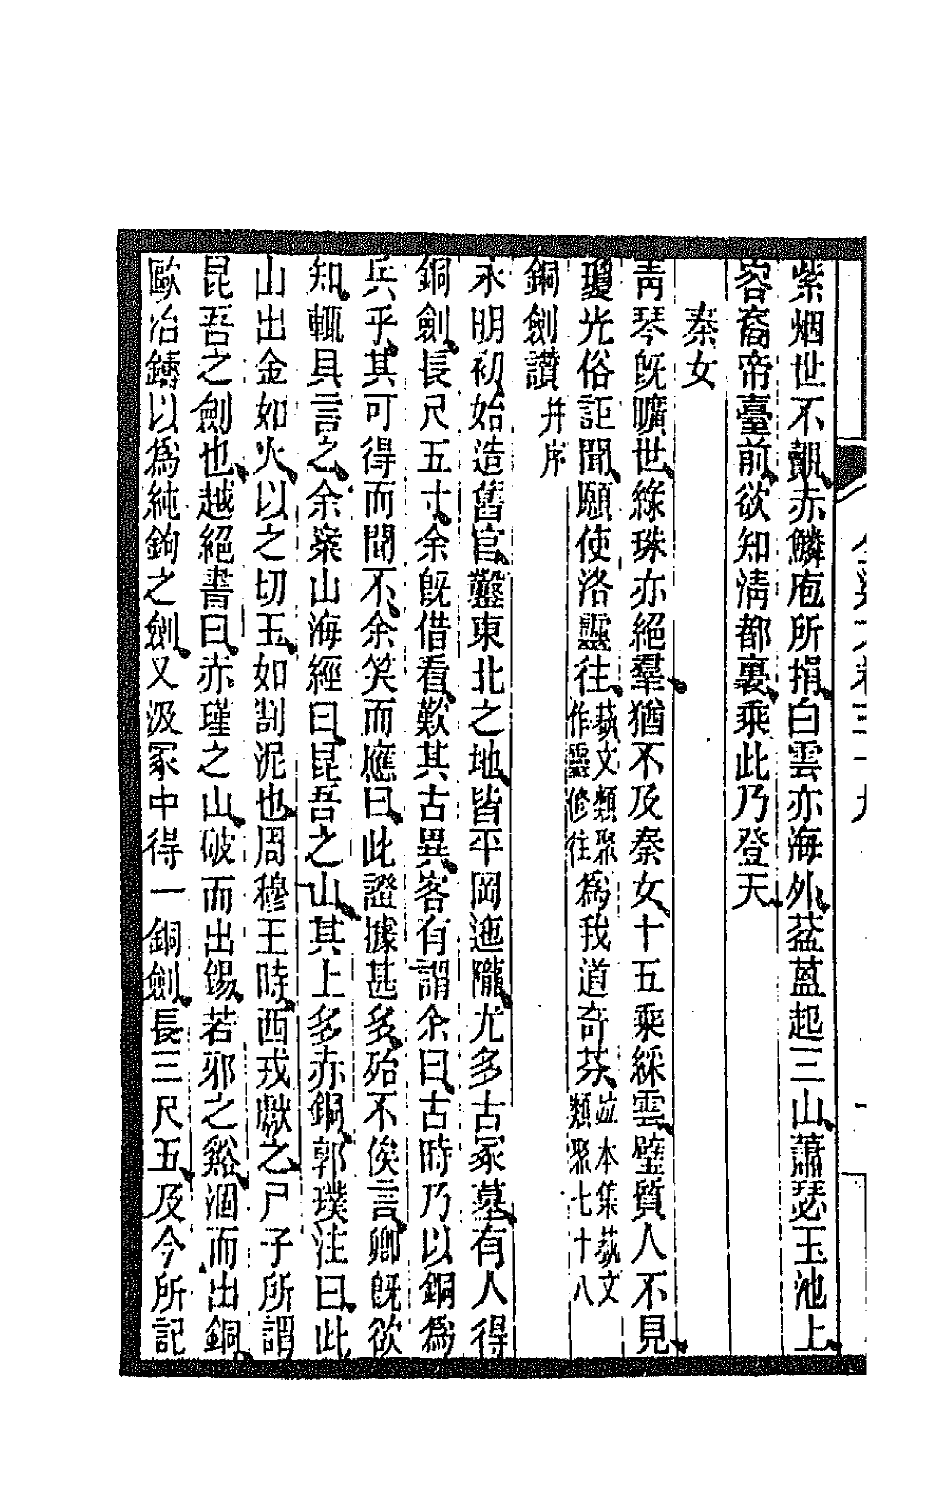 紫烟世不覿赤鱗庖所捐白雲亦海外蓊藴起三山蕭瑟玉池上
容裔帝臺前欲知清都裏乘此乃登天
秦女
靑琴旣曠世綠珠亦絕羣猶不及秦女十五乘綵雲璧質人不見
瓊光俗詎聞願使洛靈往藝文類聚作靈修往為我道奇芬竝本集藝文類聚七十八
銅劍讚幷序
永明初始造舊官鑿東北之地皆平岡迤隴尤多古冢墓有人得
銅劍長尺五寸余旣借看歎其古異客有謂余曰古時乃以銅為
兵乎其可得而聞不余笑而應曰此證據甚多殆不俟言卿旣欲
知輒具言之余案山海經曰昆吾之山其上多赤銅郭璞注曰此
山出金如火以之切玉如割泥也周穆王時西戎獻之尸子所謂
昆吾之劍也越絕書曰赤瑾之山破而出錫若邪之谿涸而出銅
歐冶鑄以為純鉤之劍又汲冢中得一銅劍長三尺五及今所記